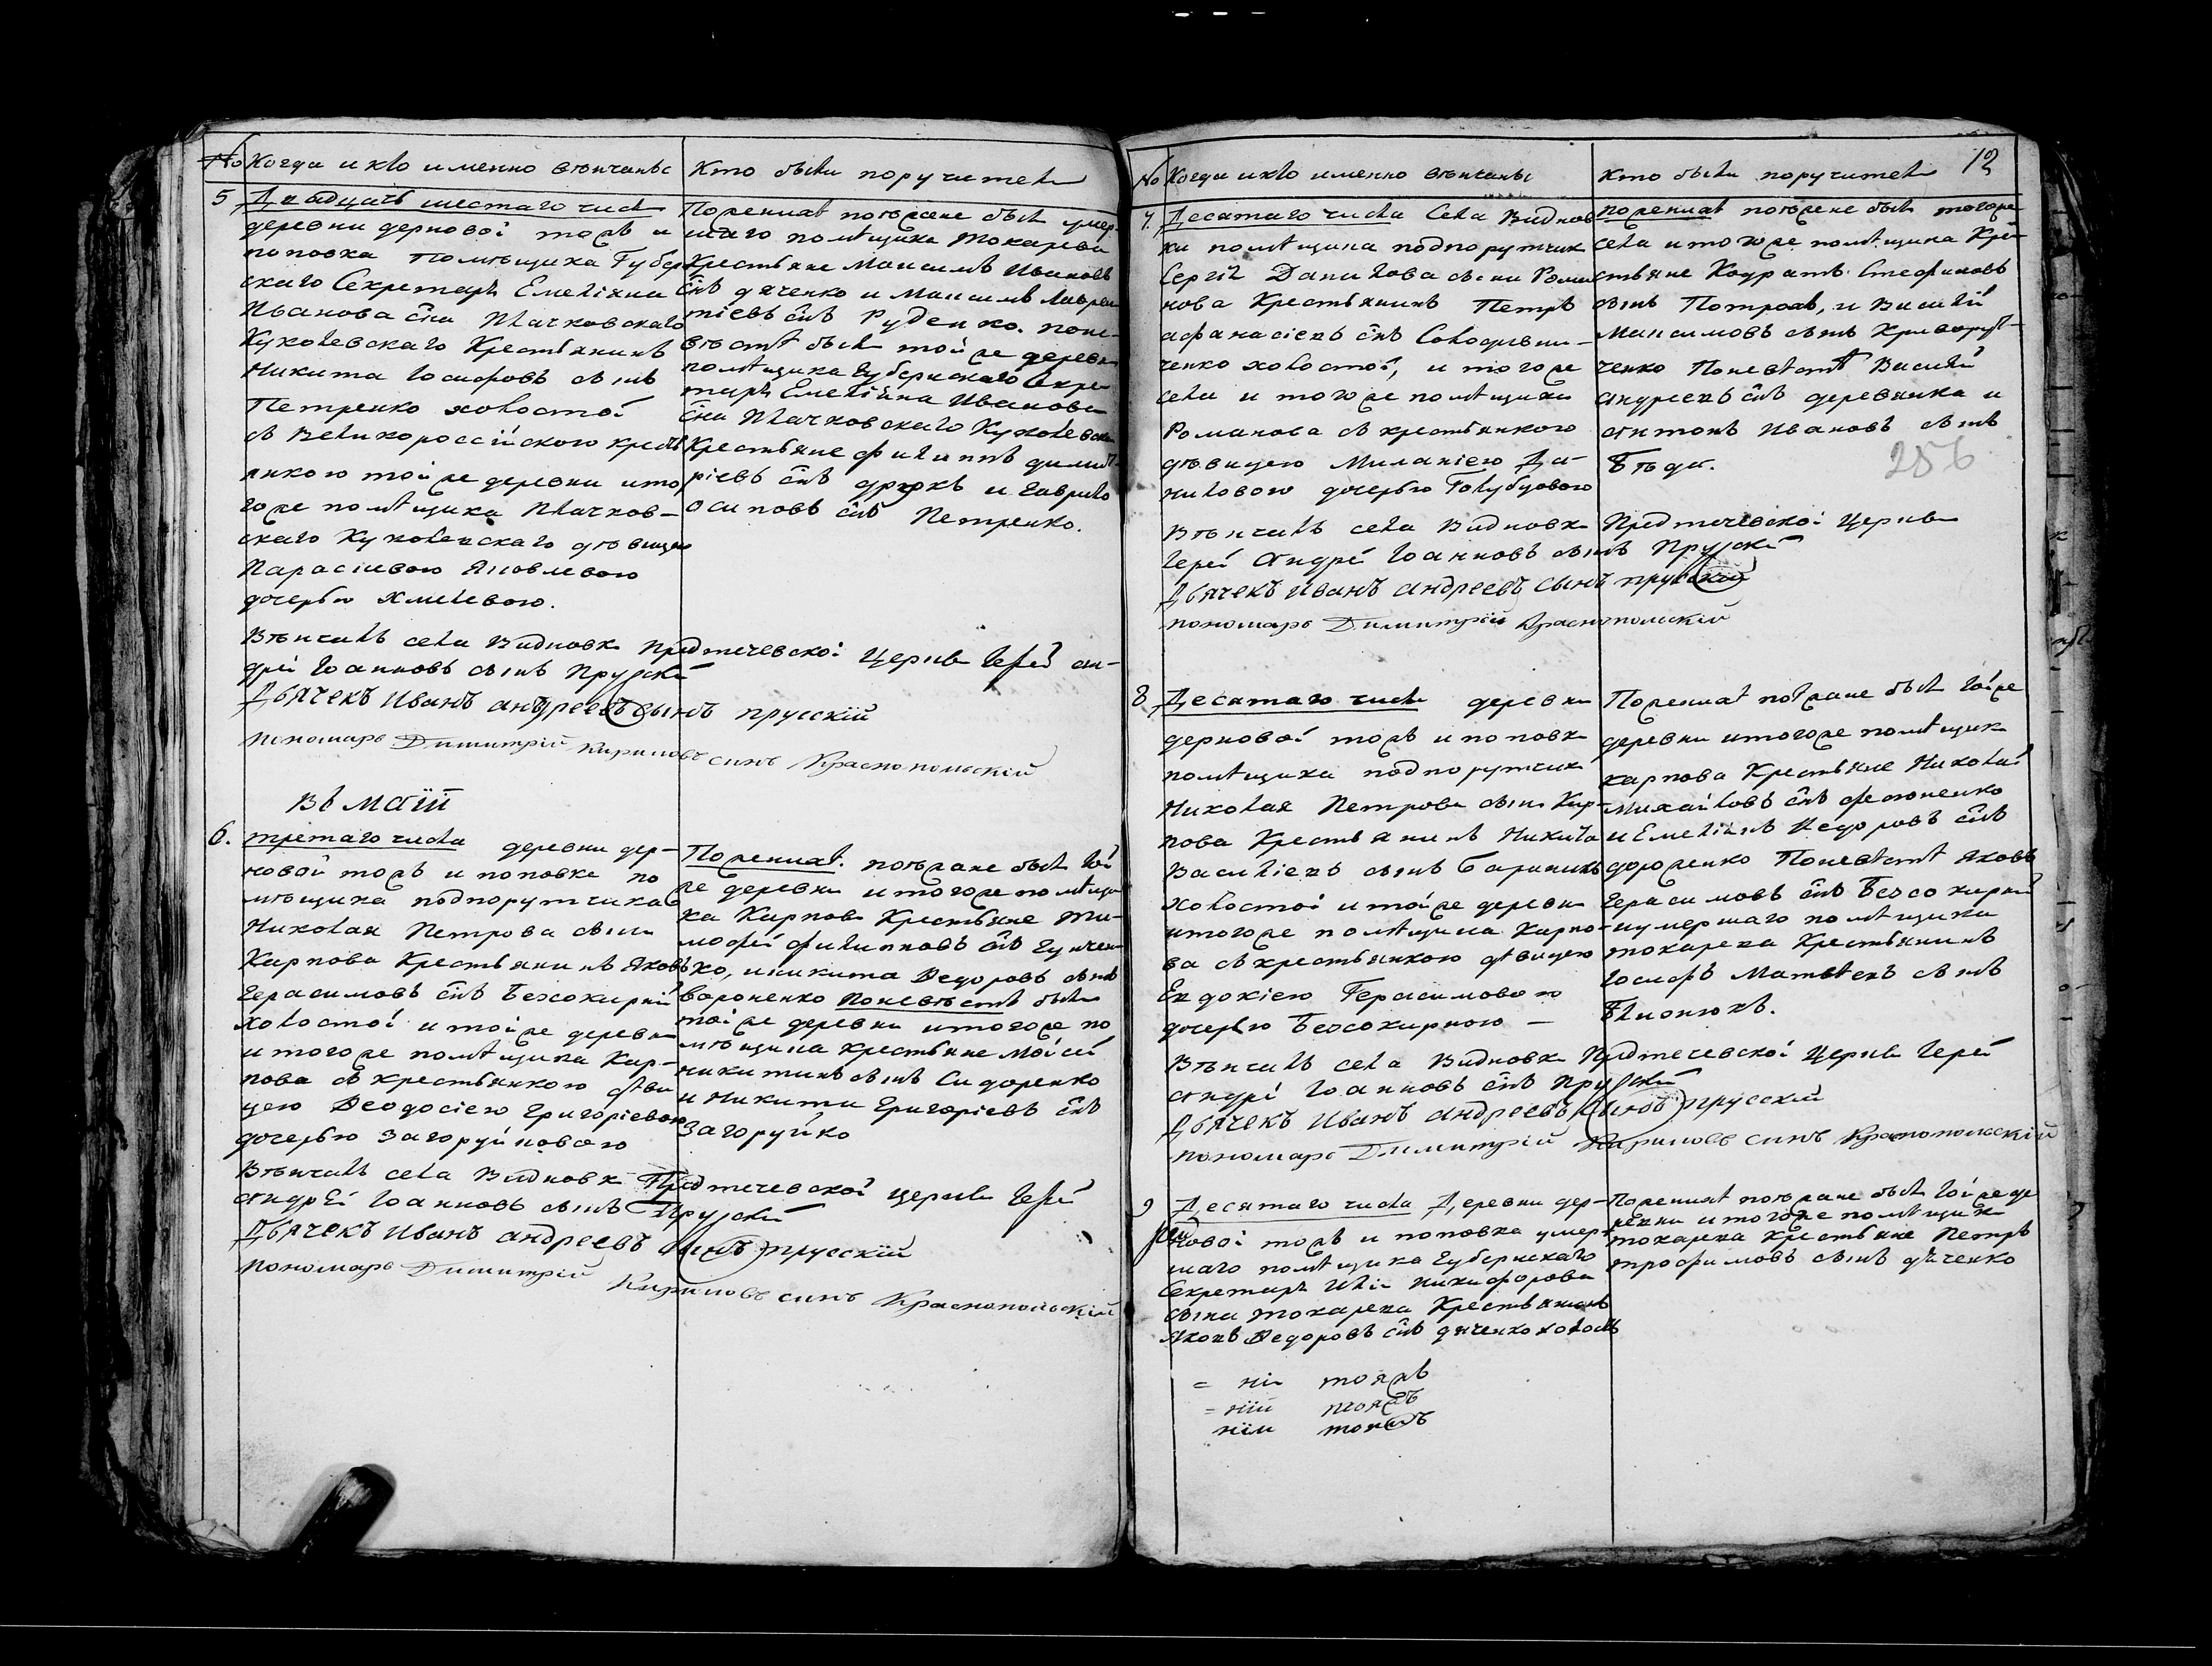 No Когда и кто именно вѣнчаны
Кто были поручители
5 Двадцать шестаго числа
деревни дерновой тожъ и
поповка помѣщика Губер
скаго Секретаря Емеліяна
Иванова сна Плачковскаго
Куколевскаго Крестьянинъ
Никита Іосифовъ сынъ
Петренко холостой
съ Великороссійского крестья
нкою тойже деревни и то
гоже помѣщика Плачков-
скаго Куколевскаго дѣвицею
Параскевою Яковлевою
дочерью Хмелевою.
Поженихѣ поѣзжане были умер-
шаго помѣщика Токарева
Крестьяне Максимъ Ивановъ
снъ дяченко и Максимъ Лаврен
тіевъ снъ Руденко. поне-
вѣстѣ были тойже деревни
помѣщика Губернскаго Секре
таря Емеліяна Иванова
сна Плачковскаго Куколевска
Крестьяне Филиппъ дими
ріевъ снъ и Гаврило
Осиповъ снъ Петренко.
Вѣнчалъ села Видновки Предтечевской Церкви Іерей Ан-
дрей Іоанновъ сынъ Прускій
Дьячекъ Иванъ андреевъ сынъ прусскій
пономарь Димитрій Кириловъ синъ Краснопольскій
Въ маіи
6. третаго числа деревни дер-
новой тожъ и поповке по
мѣщика подпорутчика
Николая Петрова сына
Карпова Крестьянинъ Яковъ
Герасимовъ снъ Безсокирній
холостой и тойже деревни
и тогоже помѣщика Кар-
пова съ крестьянкою дѣви
цею Ѳеодосіею Григоріевою
дочерью Загоруйковою
Поженихѣ. поѣзжане были той
же деревни и тогоже помѣщи
ка Карпова Крестьяне Ти-
мофей филиповъ снъ
ко, и никита Ѳедоровъ сынъ
вороненко Поневѣстѣ были
тойже деревни и тогоже по
мѣщика крестьяне Моісей
никитинъ сынъ Сидоренко
и Никита Григоріевъ снъ
Загоруйко
Вѣнчалъ села Видновки Предтечевской церкви Іерей
Андрей Іоанновъ сынъ Прускій
Дьячекъ Иванъ андреевъ сынъ прусскій
пономарь Димитрій Кириловъ синъ Краснопольскій
No Когда и кто именно вѣнчаны
Кто были поручители 12
7. Десятаго числа Села Виднов
ки помѣщика подпорутчик
Сергія Данилова сына Рома
нова Крестьянинъ Петръ
афанасіевъ снъ Солодовни-
ченко холостой, и тогоже
села и тогоже помѣщика
Романова съ крестьянкою
дѣвицею Миланіею Да-
ниловою дочерью Голубцовою
поженихѣ поѣзжане были тогоже
села и тогоже помѣщика Кре-
стьяне Кодратъ Стефановъ
сынъ Потроль, и Василій
Максимовъ сынъ Криворуч-
ченко Поневѣстѣ Василій
андреевъ снъ деревянка и
антонъ Ивановъ сынъ
Бѣда.
256
Вѣнчалъ села Видновки Предтечевской Церкви
Іерей Андрей Іоанновъ сынъ Прускій
Дьячекъ Иванъ андреевъ сынъ прусскій
пономарь Димитрій Краснопольскій
8 Десятаго числа деревни
дерновой тожъ и поповки
помѣщика подпорутчик
Николая Петрова сына Кар-
пова Крестьянинъ Никита
Василіевъ сынъ Баранникъ
холостой и тойже деревни
и тогоже помѣщика Карпо-
ва съ крестьянкою дѣвицею
Евдокіею Герасимовою
дочерью Безсокирною —
Поженихѣ поѣзжане были тойже
деревни и тогоже помѣщик
карпова Крестьяне Николай
Михайловъ снъ Федоненко
и Емеліянъ Ѳедоровъ снъ
дороженко Поневѣстѣ Яковъ
Герасимовъ снъ Безсокирній
и умершаго помѣщика
токарева Крестьянинъ
Іосифъ Матвѣевъ сынъ
Вѣнчалъ села Видновки Предтечевской Церкви Іерей
андрей Іоанновъ снъ Прускій
Дьячекъ Иванъ андреевъ сынъ прусскій
пономарь Димитрій Кириловъ синъ Краснопольскій
9 Десятаго числа Деревни дер-
новой тожъ и поповка умер-
шаго помѣщика Губернскаго
Секретаря Иліи никифорова
сына токарева Крестьянинъ
Яковъ Ѳедоровъ снъ дяченко холост
Поженихѣ поѣзжане были тойже де
ревни и тогоже помѣщик
токарева крестьяне Петръ
трофимовъ сынъ дяченко
= ніи тожъ
= ніи тожъ
ніи тожъ